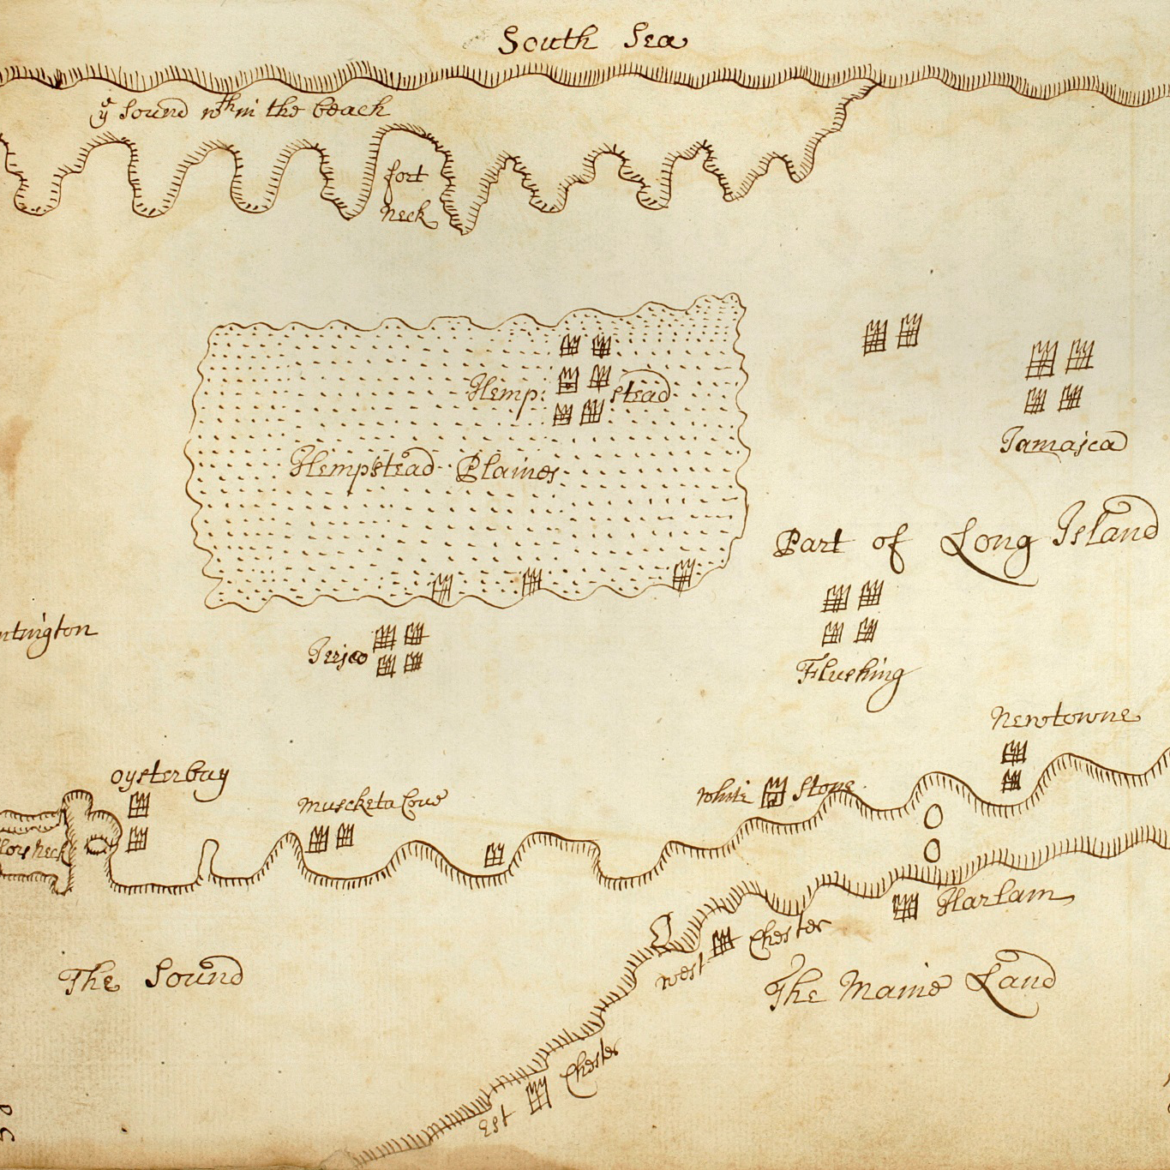 South Sea
yͤ Sound wᵗʰin the beach
fort
Neck
Hemp: stead
Hempstead Plaines
Jamaica
Part of Long Island
ntington
Jerico
Flushing
Newtowne
oysterbay
Muscketa Cove
White Stone
Neck
Harlam
West Chester
The Sound
The Maine Land
Est Chester